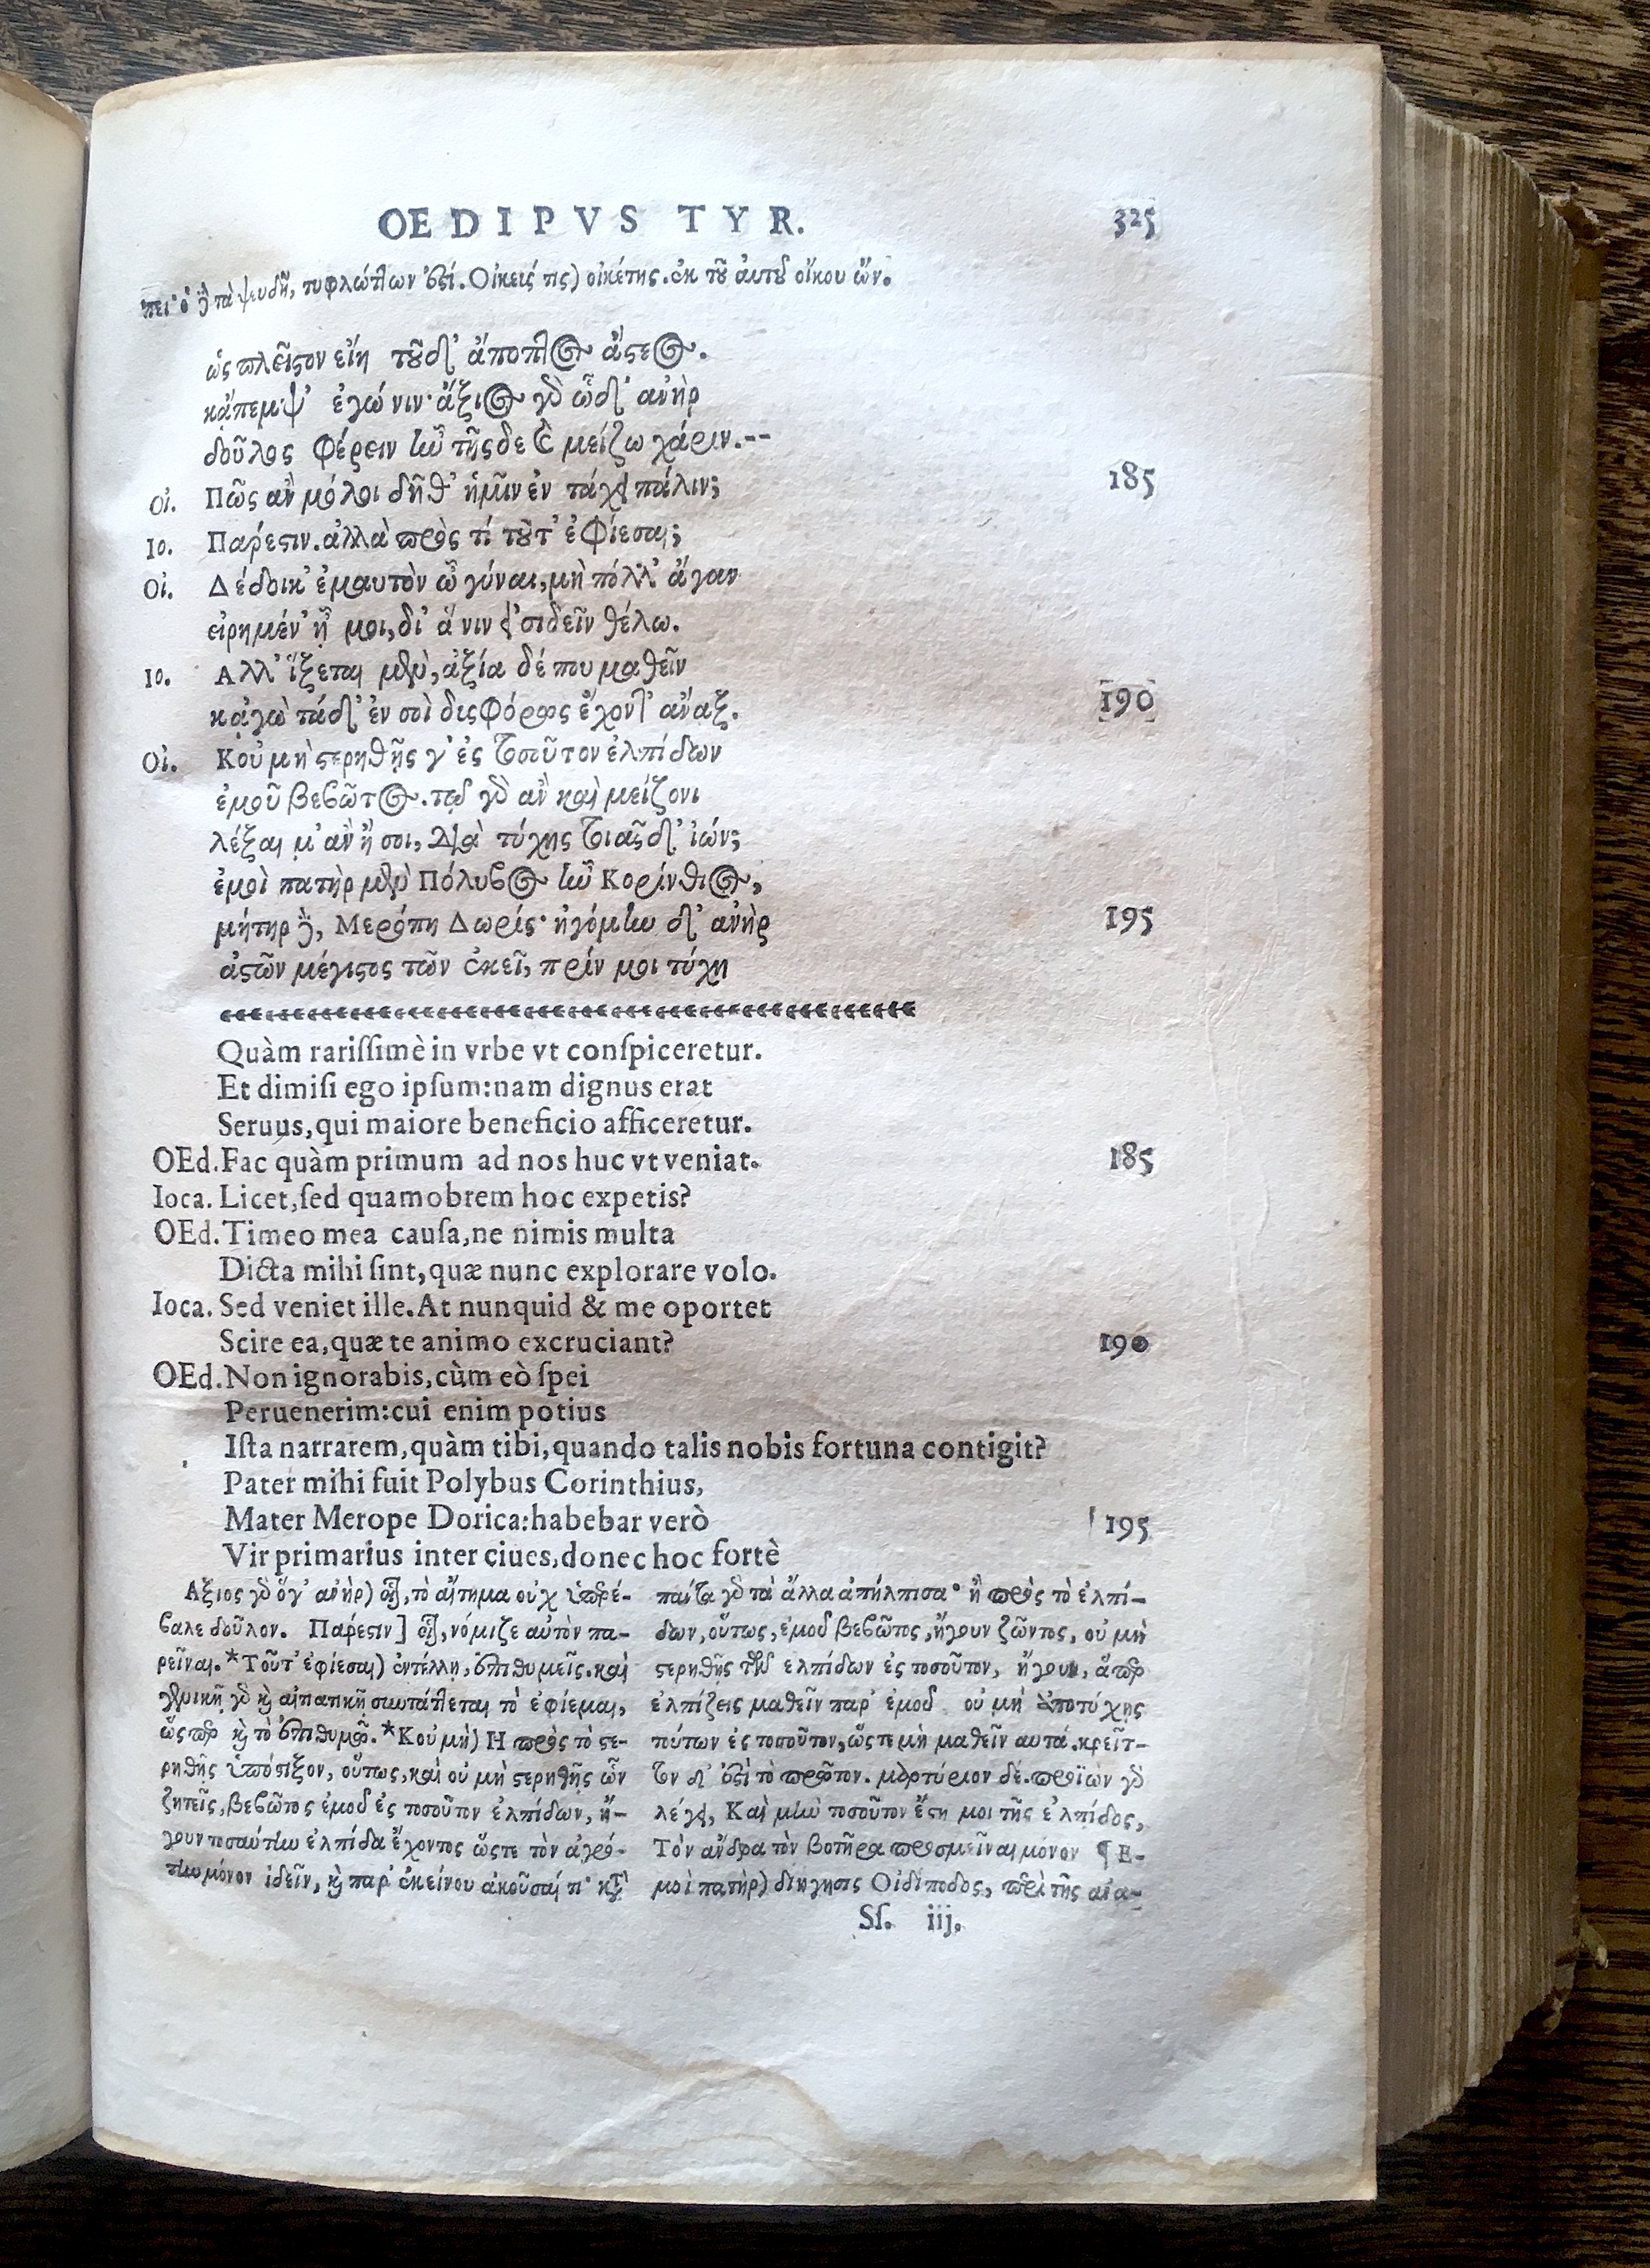 OEDIPVS TYR. 325
πει· ὁ δὲ τὰ ψευδῆ, τυφλώττων ἐστί. Οἰκεύς τις) οἰκέτης. ἐκ τοῦ αὐτοῦ οἴκου ὤν.
ὡς πλεῖστον εἴη τοῦδ' ἄποπτος ἄστεος.
κἄπεμψ' ἐγώ νιν· ἄξιος γὰρ ὧδ' ἀνὴρ
δοῦλος φέρειν ἦν τῆςδε καὶ μείζω χάριν.--
Οἰ. Πῶς ἂν μόλοι δῆθ' ἡμῖν ἐν τάχει πάλιν; 185
Ιο. Πάρεστιν. ἀλλὰ πρὸς τί τοῦτ' ἐφίεσαι;
Οἰ. Δέδοικ' ἐμαυτὸν ὦ γύναι, μὴ πόλλ' ἄγαν
εἰρημέν' ᾖ μοι, δι' ἅ νιν εἰσιδεῖν θέλω.
Ιο. Αλλ' ἵξεται μὲν, ἀξία δέ που μαθεῖν
κἀγὼ τάδ' ἐν σοὶ δυσφόρως ἔχοντ' ἄναξ. 190
Οἰ. Κοὐ μὴ στερηθῇς γ' ἐς τοσοῦτον ἐλπίδων
ἐμοῦ βεβῶτος. τῷ γὰρ ἂν καὶ μείζονι
λέξαιμ' ἂν ἢ σοι, διὰ τύχης τοιᾶσδ' ἰών;
ἐμοὶ πατὴρ μὲν Πόλυβος ἦν Κορίνθιος,
μήτηρ δὲ, Μερόπη Δωρίς· ἠγόμην δ' ἀνὴρ 195
ἀστῶν μέγιστος τῶν ἐκεῖ, πρίν μοι τύχη
Quàm rarissimè in vrbe vt conspiceretur.
Et dimisi ego ipsum:nam dignus erat
Seruus, qui maiore beneficio afficeretur.
OEd. Fac quàm primum ad nos huc vt veniat. 185
Ioca. Licet, sed quamobrem hoc expetis?
OEd. Timeo mea causa, ne nimis multa
Dicta mihi sint, quæ nunc explorare volo.
Ioca. Sed veniet ille. At nunquid & me oportet
Scire ea, quæ te animo excruciant? 190
OEd. Non ignorabis, cùm eò spei
Peruenerim:cui enim potius
Ista narrarem, quàm tibi, quando talis nobis fortuna contigit?
Pater mihi fuit Polybus Corinthius,
Mater Merope Dorica:habebar verò 195
Vir primarius inter ciues, donec hoc fortè
Αξιος γὰρ ὅγ' ἀνὴρ) τὸ αἴτημα οὐχ ὑπερέ-
βαλε δοῦλον. Πάρεστιν] νόμιζε αὐτὸν πα-
ρεῖναι. *Τοῦτ' ἐφίεσαι) ἐντέλλῃ, ἐπιθυμεῖς. καὶ
γενικῇ γὰρ καὶ αἰτιατικῇ συντάττεται τὸ ἐφίεμαι,
ὥσπερ καὶ τὸ ἐπιθυμῶ. *Κοὐ μὴ) Η πρὸς τὸ στε-
ρηθῇς ὑπόστιξον, οὕτως, καὶ οὐ μὴ στερηθῇς ὧν
ζητεῖς, βεβῶτος ἐμοῦ ἐς τοσοῦτον ἐλπίδων, ἤ-
γουν τοσαύτην ἐλπίδα ἔχοντος ὥστε τὸν ἀγρό-
την μόνον ἰδεῖν, καὶ παρ' ἐκείνου ἀκοῦσαί τι·
πάντα γὰρ τὰ ἄλλα ἀπήλπισα· ἢ πρὸς τὸ ἐλπί-
δων, οὕτως, ἐμοῦ βεβῶτος, ἤγουν ζῶντος, οὐ μὴ
στερηθῇς τῶν ἐλπίδων ἐς τοσοῦτον, ἤγουν, ἅπερ
ἐλπίζεις μαθεῖν παρ' ἐμοῦ οὐ μὴ ἀποτύχῃς
τούτων ἐς τοσοῦτον, ὥστε μὴ μαθεῖν αὐτά. κρεῖτ-
τον δ' ἐστὶ τὸ πρῶτον. μαρτύριον δέ. προϊὼν γὰρ
λέγει, Καὶ μὴν τοσοῦτον ἔστι μοι τῆς ἐλπίδος,
Τὸν ἄνδρα τὸν βοτῆρα προσμεῖναι μόνον ¶ Ε-
μοὶ πατὴρ) διήγησις Οἰδίποδος, περὶ τῆς
Sſ. iij.